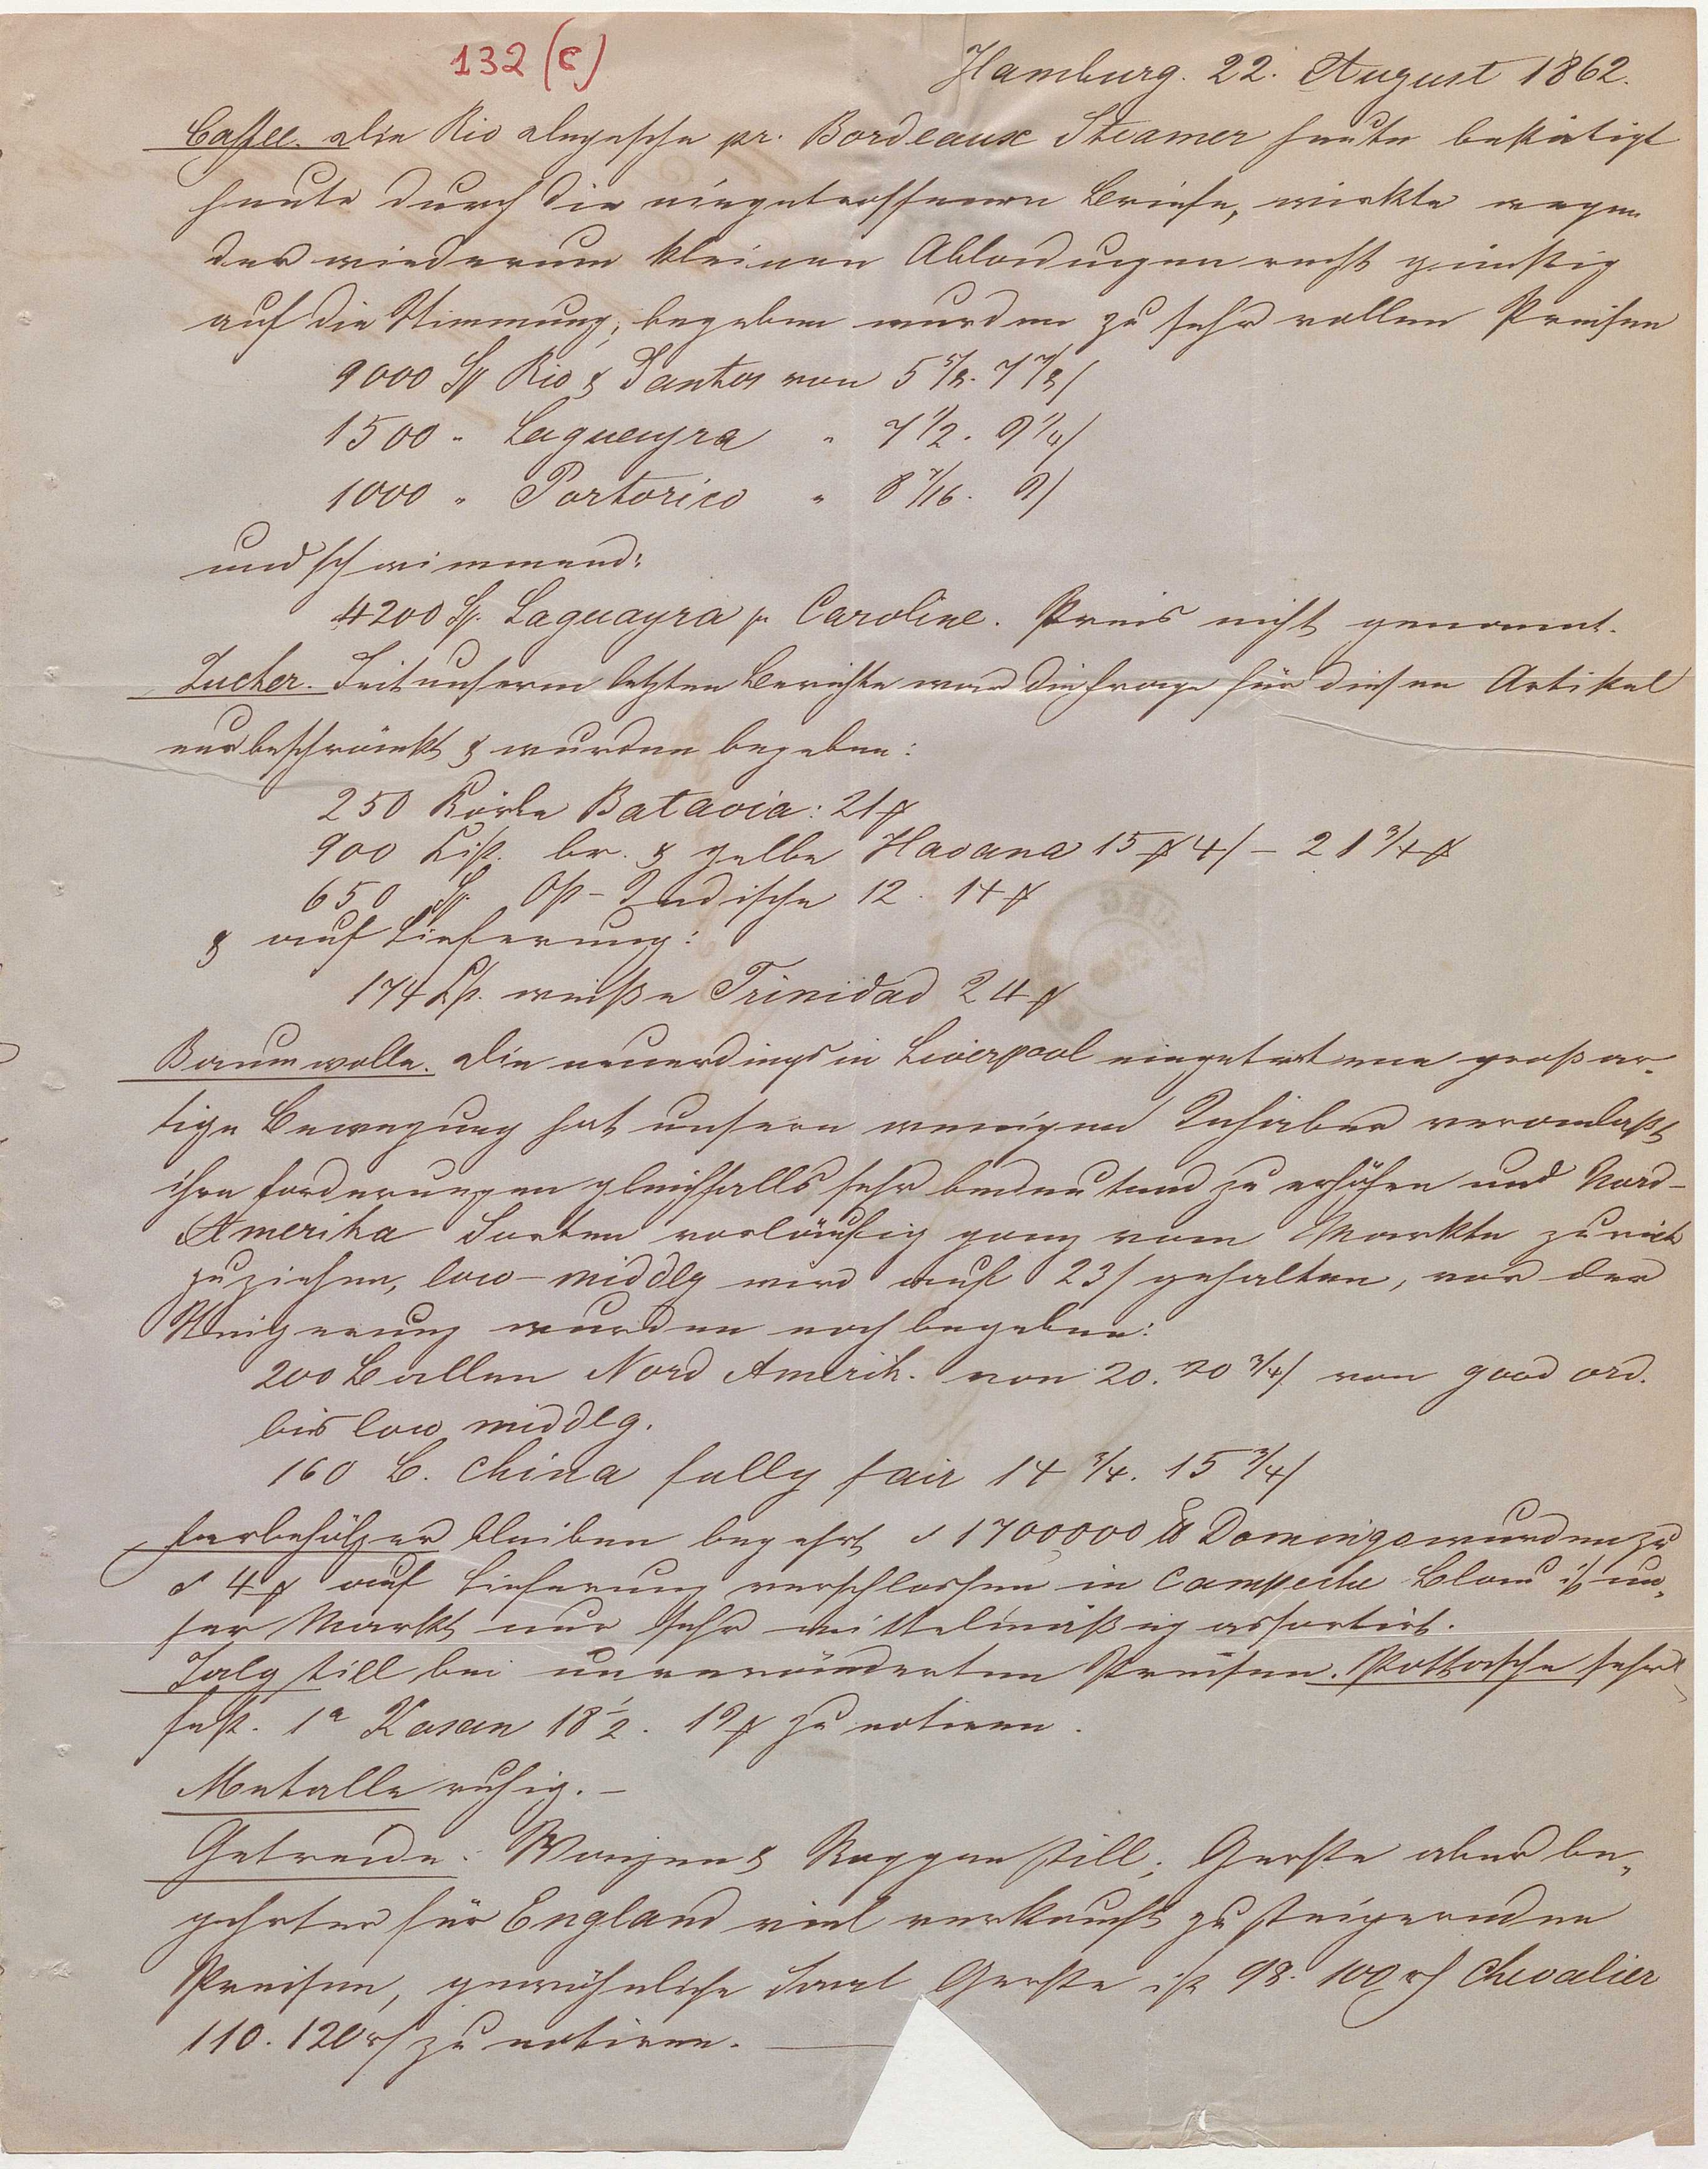 132 (c)
Hamburg. 22. August 1862.
Caffee. Die Rio Depesche pr. Bordeaux Steamer heute bestätigt
heute durch die eingetroffenen Briefe, wirkte wegen
der wiederum kleinen Abladungen recht günstig
auf die Stimmung; begeben wurden zu sehr vollen Preisen
9000 Sg Rio & Santos von 5 5/8. 7 7/8/
1500 " Laguayra " 7 1/2. 9 1/4/
1000 " Portorico " 8 7/16. 9/
und schwimmend:
4200 Sg. Laguayra pr Caroline. Preis nicht genannt.
Zucker. Seit unserm letzten Berichte war die Frage für diesen Artikel
nur beschränkt & wurden begeben:
250 Körbe Batavia: 21
900 Kist. br. & gelbe Havana 15 4/ – 21 3/4
650 Sg. Ost-Indische 12. 14
& auf Lieferung:
174 Kst. weiße Trinidad 24
Baumwolle. Die neuerdings in Liverpool eingetretene großar-
tige Bewegung hat unsere wenigen Inhaber veranlaßt
ihre Forderungen gleichfalls sehr bedeutend zu erhöhen und Nord-
Amerika Sorten vorläufig ganz vom Markte zurück
zuziehen, low-middlg wird auf 23/ gehalten, vor der
Steigerung wurden noch begeben:
200 Ballen Nord Amerik. von 20. 20 3/4/ von good ord.
bis low middlg.
160 B. China fully fair 14 3/4. 15 3/4/
Farbehölzer bleiben begehrt 1700000 ℔ Domingo wurden zu
4 auf Lieferung verschlossen in Campeche Blau ist un-
ser Markt nur sehr mittelmäßig assortirt.
Talg still bei unveränderten Preisen. Pottasche sehr
fest. 1a Kasan 18 1/2. 19 zu notiren.
Metalle ruhig. –
Getreide: Waizen & Roggen still; Gerste aber be-
gehrter für England viel verkauft zu steigernden
Preisen, gewöhnliche Saal Gerste ist 98. 100 Chevalier
110. 120 zu notiren. —